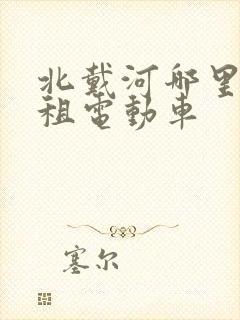 北戴河哪里
租電動車
塞尔